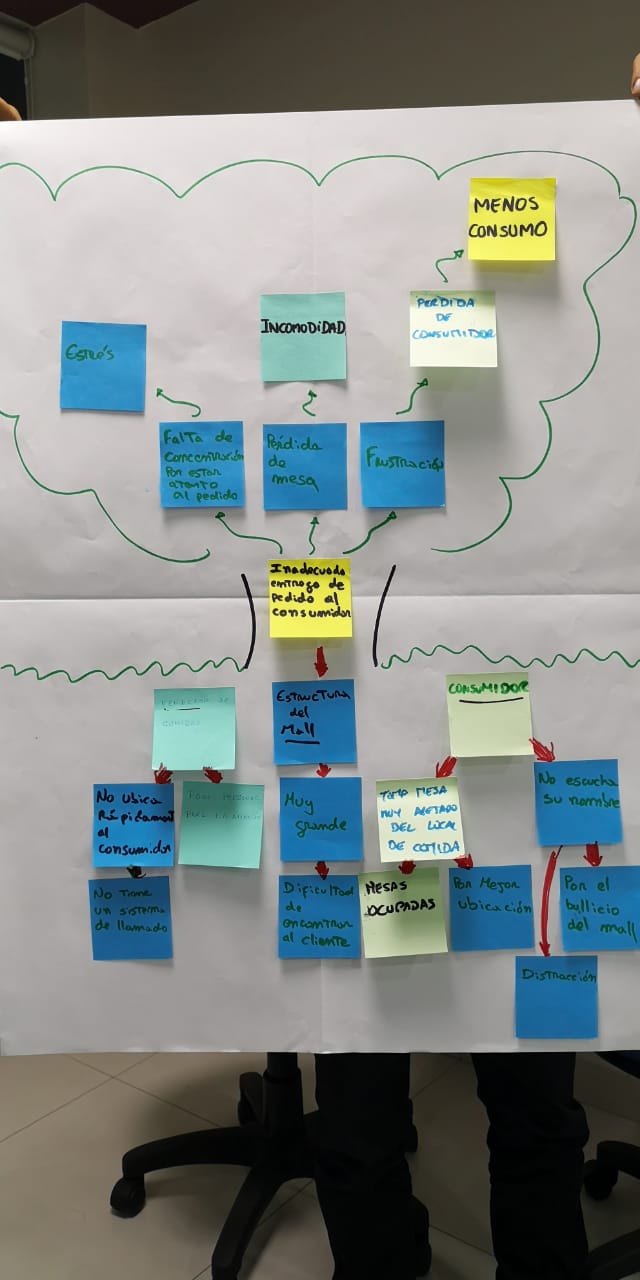 MENOS
CONSUMO
PERDIDA
DE
CONSUMIDOR
INCOMODIDAD
Estrés
Falta de
concentración
Por estar
atento
al pedido
Pérdida
de
mesa
Frustración
Inadecuada
entrega de
pedido al
consumidor
ESTRUCTURA
del
Mall
CONSUMIDOR
DE
COMIDAS
No ubica
al
consumidor
Muy
grande
MESA
MUY
DEL LOCAL
DE COMIDA
No escucha
su nombre
No tiene
un sistema
de llamado
Dificultad
de
encontrar
al cliente
MESAS
OCUPADAS
Por mejor
ubicación
Por el
bullicio
del mall
Distracción